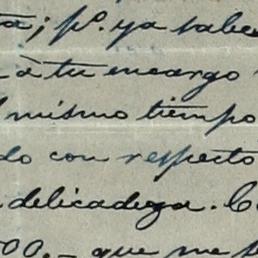 ; pº. ya sabe
à tu encargo
mismo tiempo
do con respecto
delicadeza. C
00.- que me